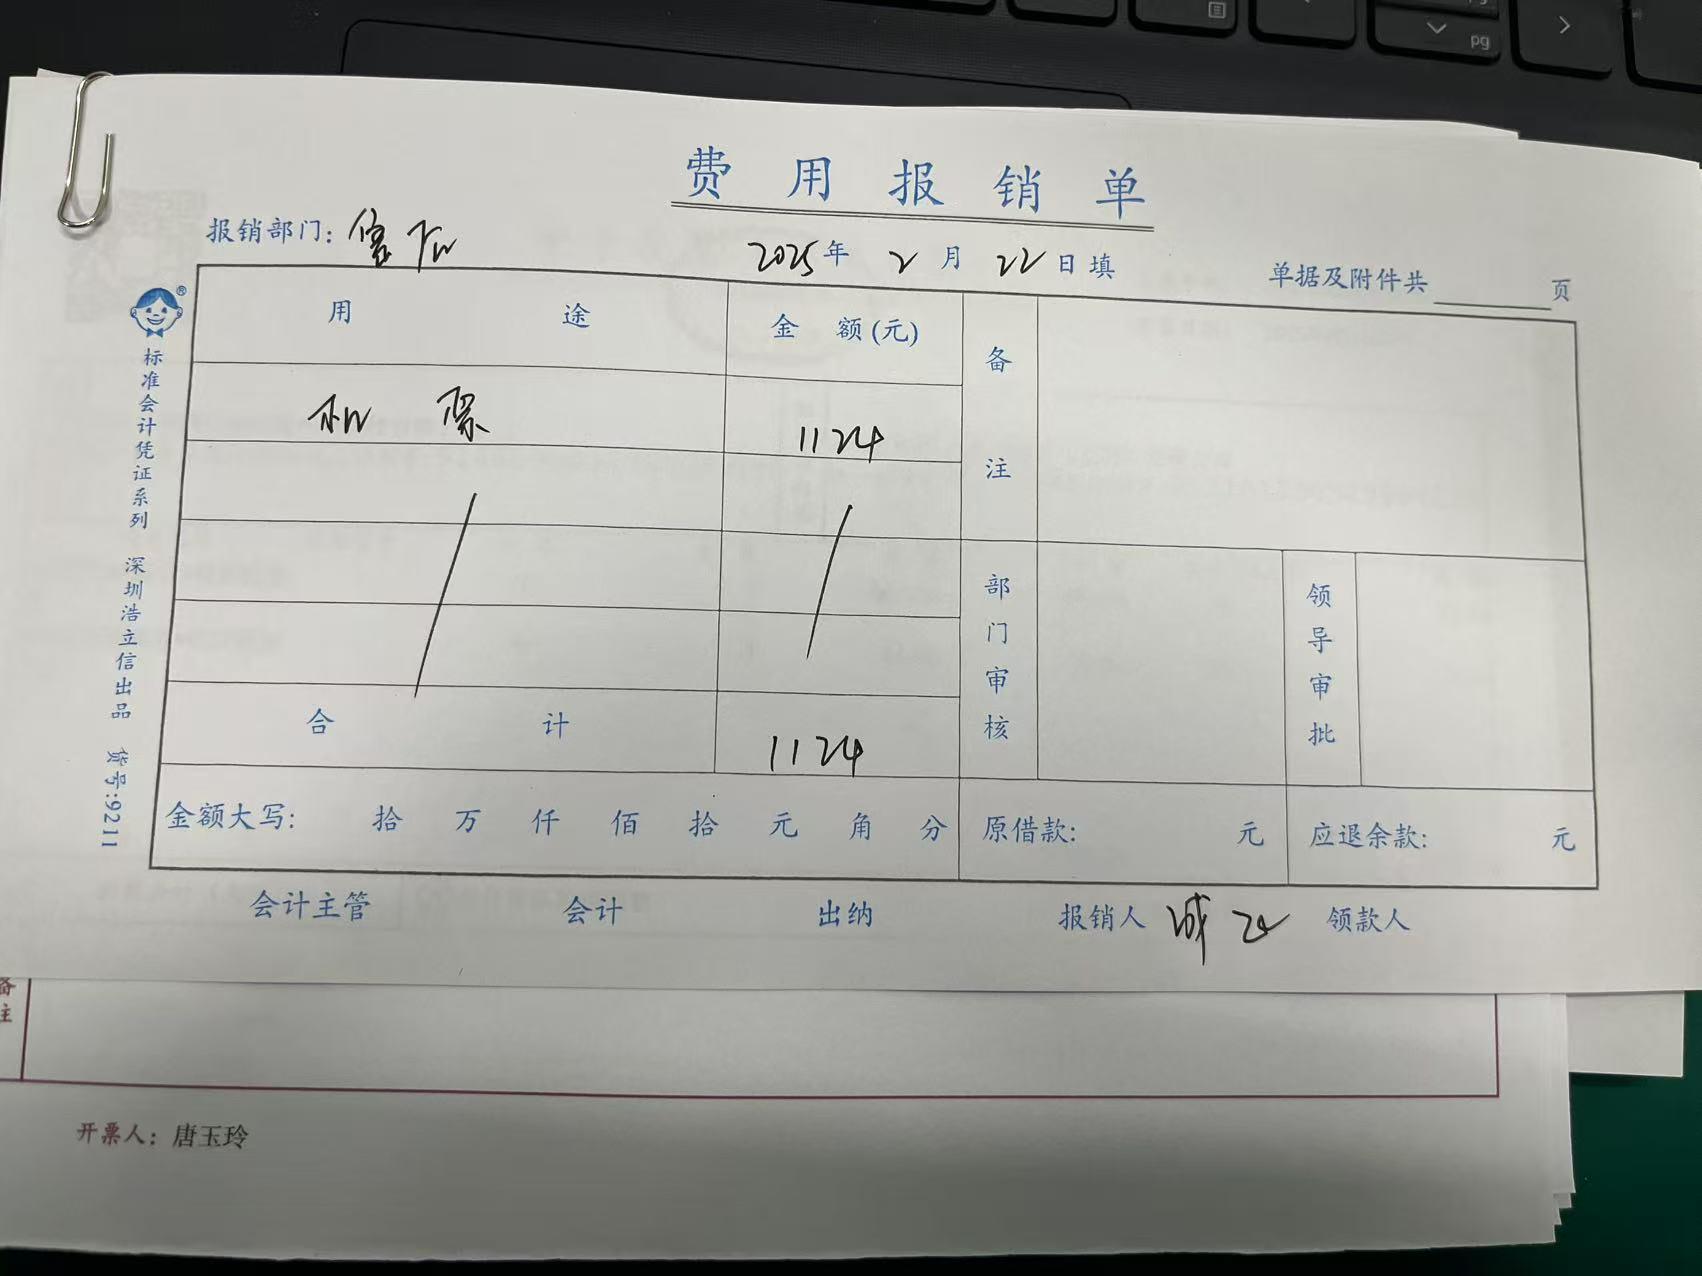 费用报销单
报销部门: 售后
2025年 2月 22日填
单据及附件共 页
用途 金额(元) 备注
机票 1124
合计 1124
部门审核 领导审批
金额大写: 拾 万 仟 佰 拾 元 角 分 原借款: 元 应退余款: 元
会计主管 会计 出纳 报销人 领款人
标准会计凭证系列 深圳浩立信出品 货号:9211
备注
开票人: 唐玉玲
pg